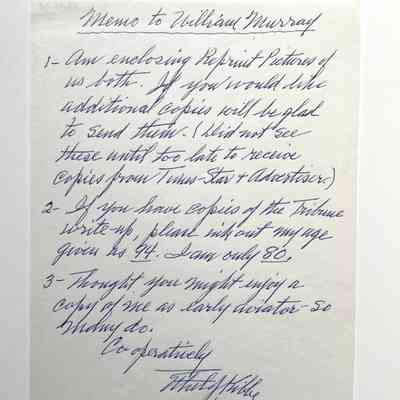 Memo to William Murray
1- Am enclosing Reprint Pictures of
us both. If you would like
additional copies will be glad
to send them. (Did not see
these until too late to receive
copies from Times-Star & Advertiser.)
2- If you have copies of the Tribune
write-up, please ink out my age
given as 94. I am only 80.
3- Thought you might enjoy a
copy of me as early aviator - so
many do.
Co-operatively